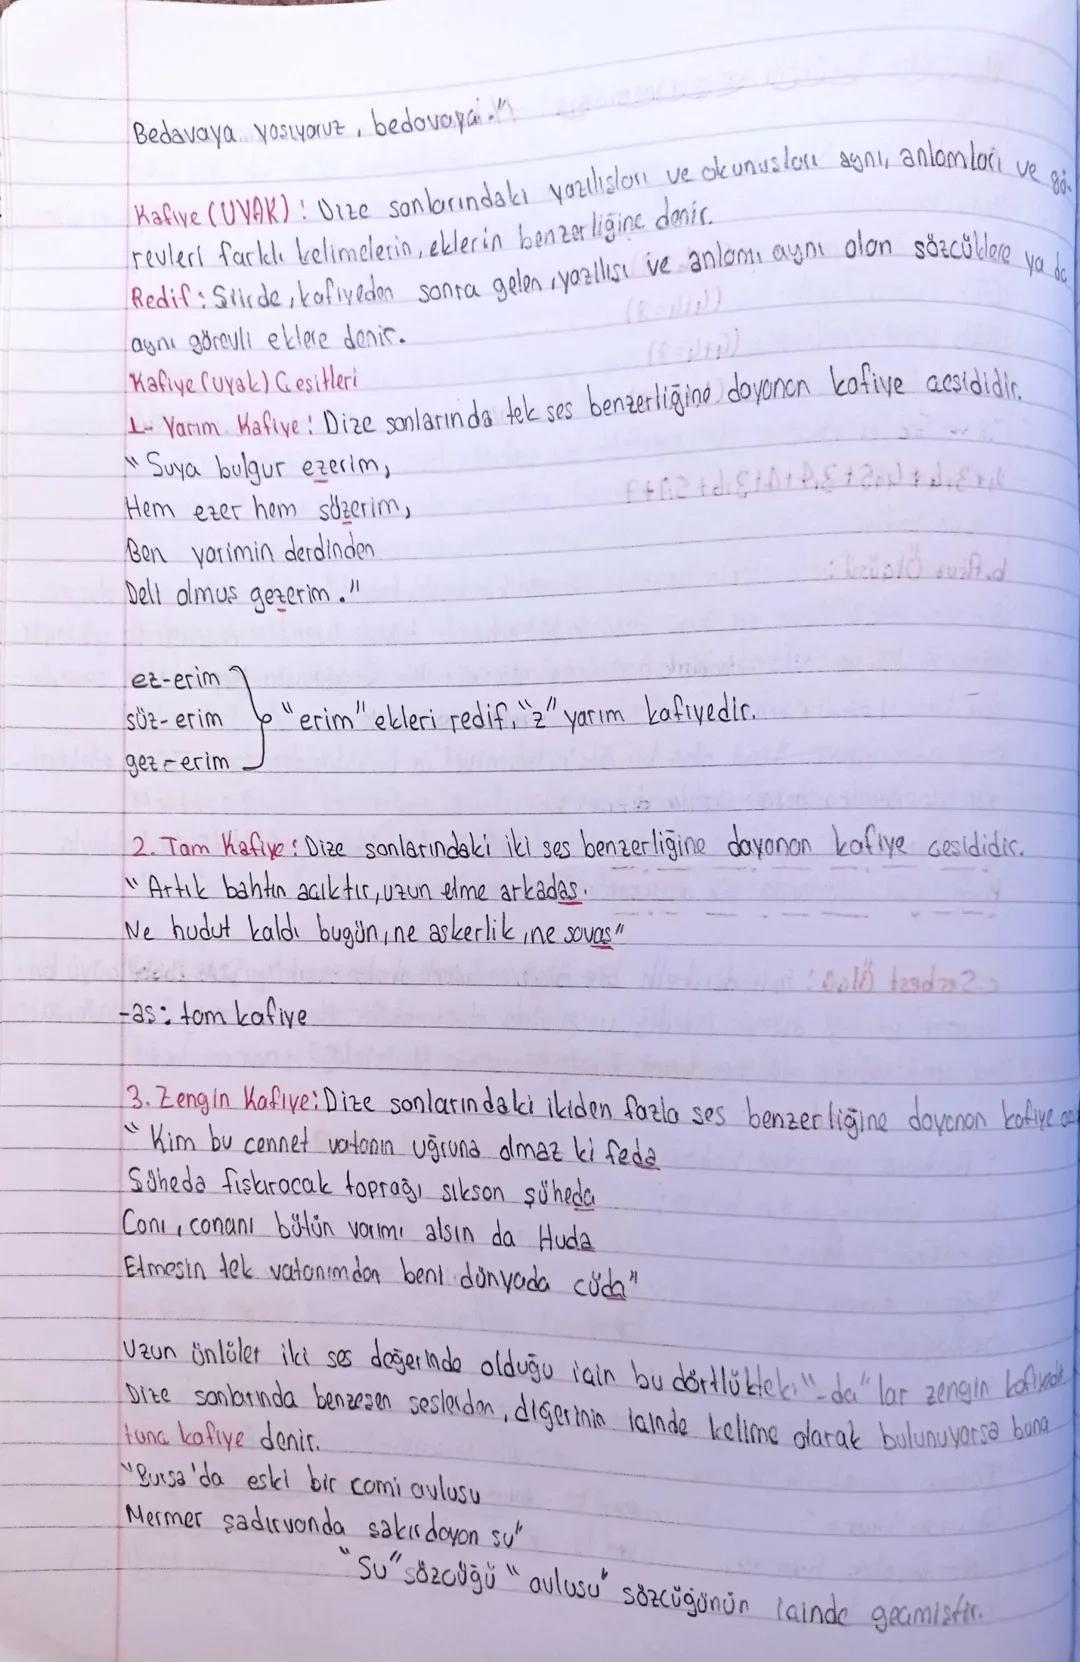 Bedavaya yasıyoruz, bedavaya."
Kafiye (UYAK): Dize sonlarındaki yazılısları ve okunusları aynı, anlamları ve gö-
revleri farklı kelimelerin, eklerin benzerliğine denir.
Redif: Siirde, kafiyeden sonra gelen, yazılısı ve anlamı aynı olan sözcüklere ya da
aynı görevli eklere denir.
Kafiye (uyak) Cesitleri
1- Yarım Kafiye: Dize sonlarında tek ses benzerliğine dayanan kafiye cesididir.
"Suya bulgur ezerim,
Hem ezer hem süzerim,
Ben yarimin derdinden
Deli olmus gezerim."
ez-erim
süz-erim "erim" ekleri redif, "z" yarım kafiyedir.
gez-erim
2. Tam Kafiye: Dize sonlarındaki iki ses benzerliğine dayanan kafiye cesididir.
"Artık bahtın acıktır, uzun etme arkadas.
Ne hudut kaldı bugün, ne askerlik, ne savas"
-as: tam kafiye
3. Zengin Kafiye: Dize sonlarındaki ikiden fazla ses benzerliğine dayanan kafiye
"Kim bu cennet vatanın uğruna olmaz ki feda
Süheda fışkıracak toprağı sıksan şüheda
Canı, cananı bütün varımı alsın da Huda
Etmesin tek vatanımdan beni dünyada cüda"
Uzun ünlüler iki ses değerinde olduğu icin bu dörtlükteki "-da" lar zengin kafiyedir
Dize sonlarında benzesen seslerden, diğerinin icinde kelime olarak bulunuyorsa buna
tunc kafiye denir.
"Bursa'da eski bir cami avlusu
Mermer şadırvanda sakırdayan su"
"Su" sözcüğü "avlusu" sözcüğünün icinde gecmistir.